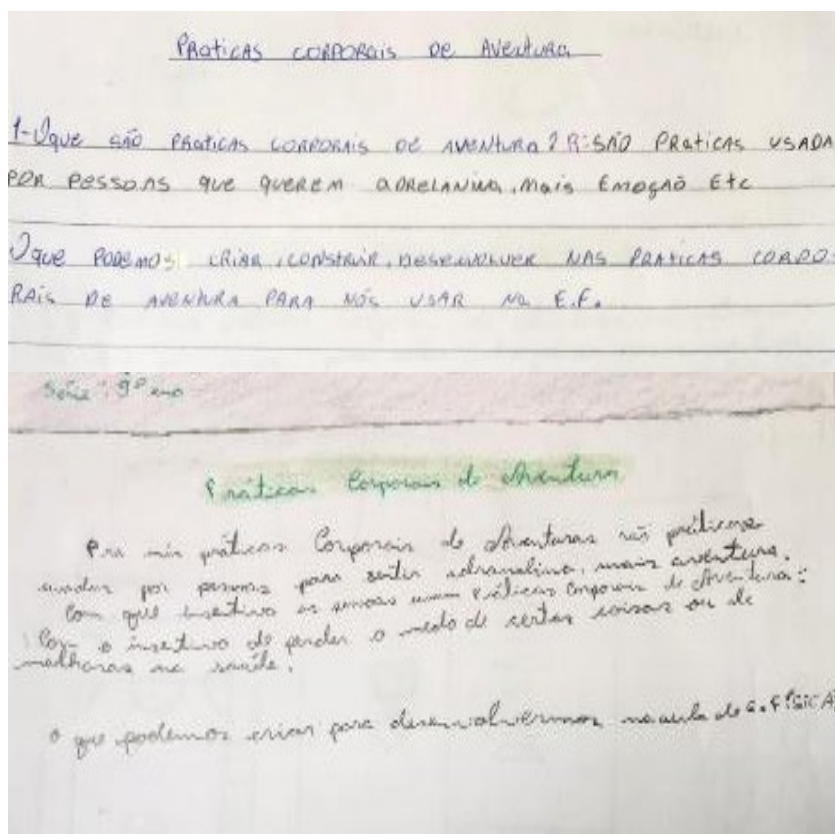 PRATICAS CORPORAIS DE AVENTURA
1-Oque SÃO PRATICAS CORPORAIS DE AVENTURA? R: SÃO PRATICAS USADA
POR PESSOAS QUE QUEREM ADRELANINA, MAIS EMOÇÃO Etc
Oque PODEMOS CRIAR, CONSTRUIR, DESENVOLVER NAS PRATICAS CORPO-
RAIS DE AVENTURA PARA NÓS USAR NA E.F.
Série: 9º ano
Práticas Corporais de Aventura
Pra min práticas Corporais de Aventuras são práticas
usadas por pessoas para sentir adranalina, mais aventura.
Com que insentivo as pessoas usam Práticas Corporais de Aventura:
Com o insentivo de perder o medo de certas coisas ou de
melhoras na saúde.
O que podemos criar para desenvolvermos na aula de E. FÍSICA